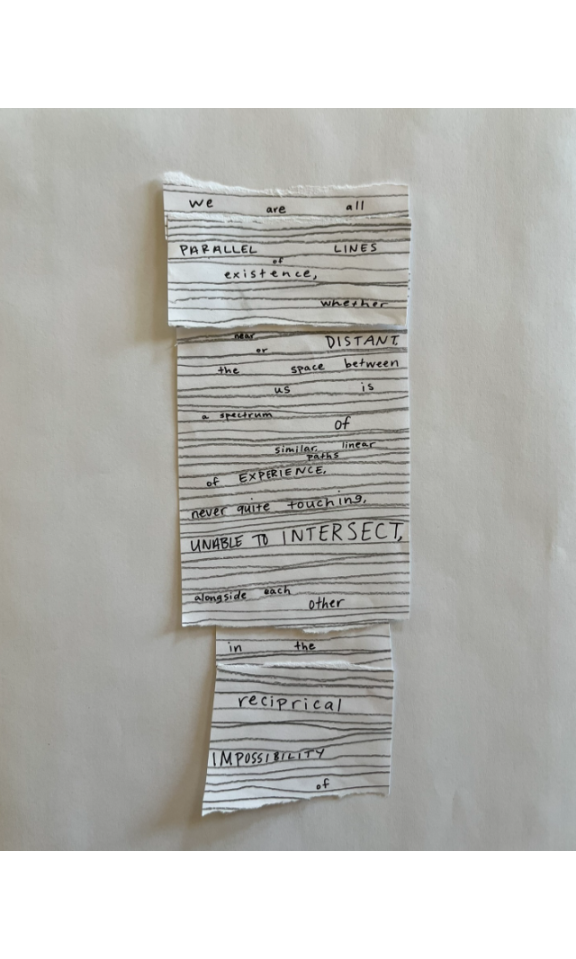 we are all
PARALLEL LINES
of
existence,
whether
near
or DISTANT,
the space between
us is
a spectrum
of
similar, linear
paths
of EXPERIENCE,
never quite touching,
UNABLE TO INTERSECT,
alongside each
other
in the
reciprical
IMPOSSIBILITY
of